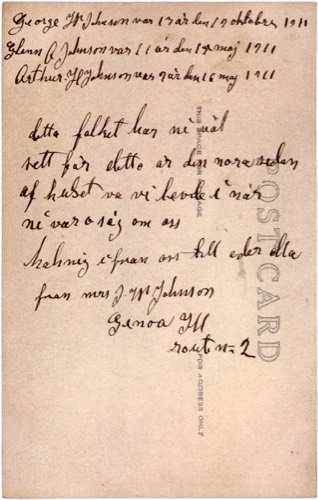 George W Johnson var 13 år den 19 oktober 1911
Glenn A Johnson var 11 år den 19 maj 1911
Arthur H Johnson var 9 år den 16 maj 1911
detta folket har ni väl
sett får detta är den nora sedan
af huset va vi bevde i när
ni var o såg om oss
ifrån oss till eder alla
fran mrs J W Johnson
Genoa Ill
rout n= 2
THIS SPACE FOR MESSAGE
POSTCARD
FOR ADDRESS ONLY